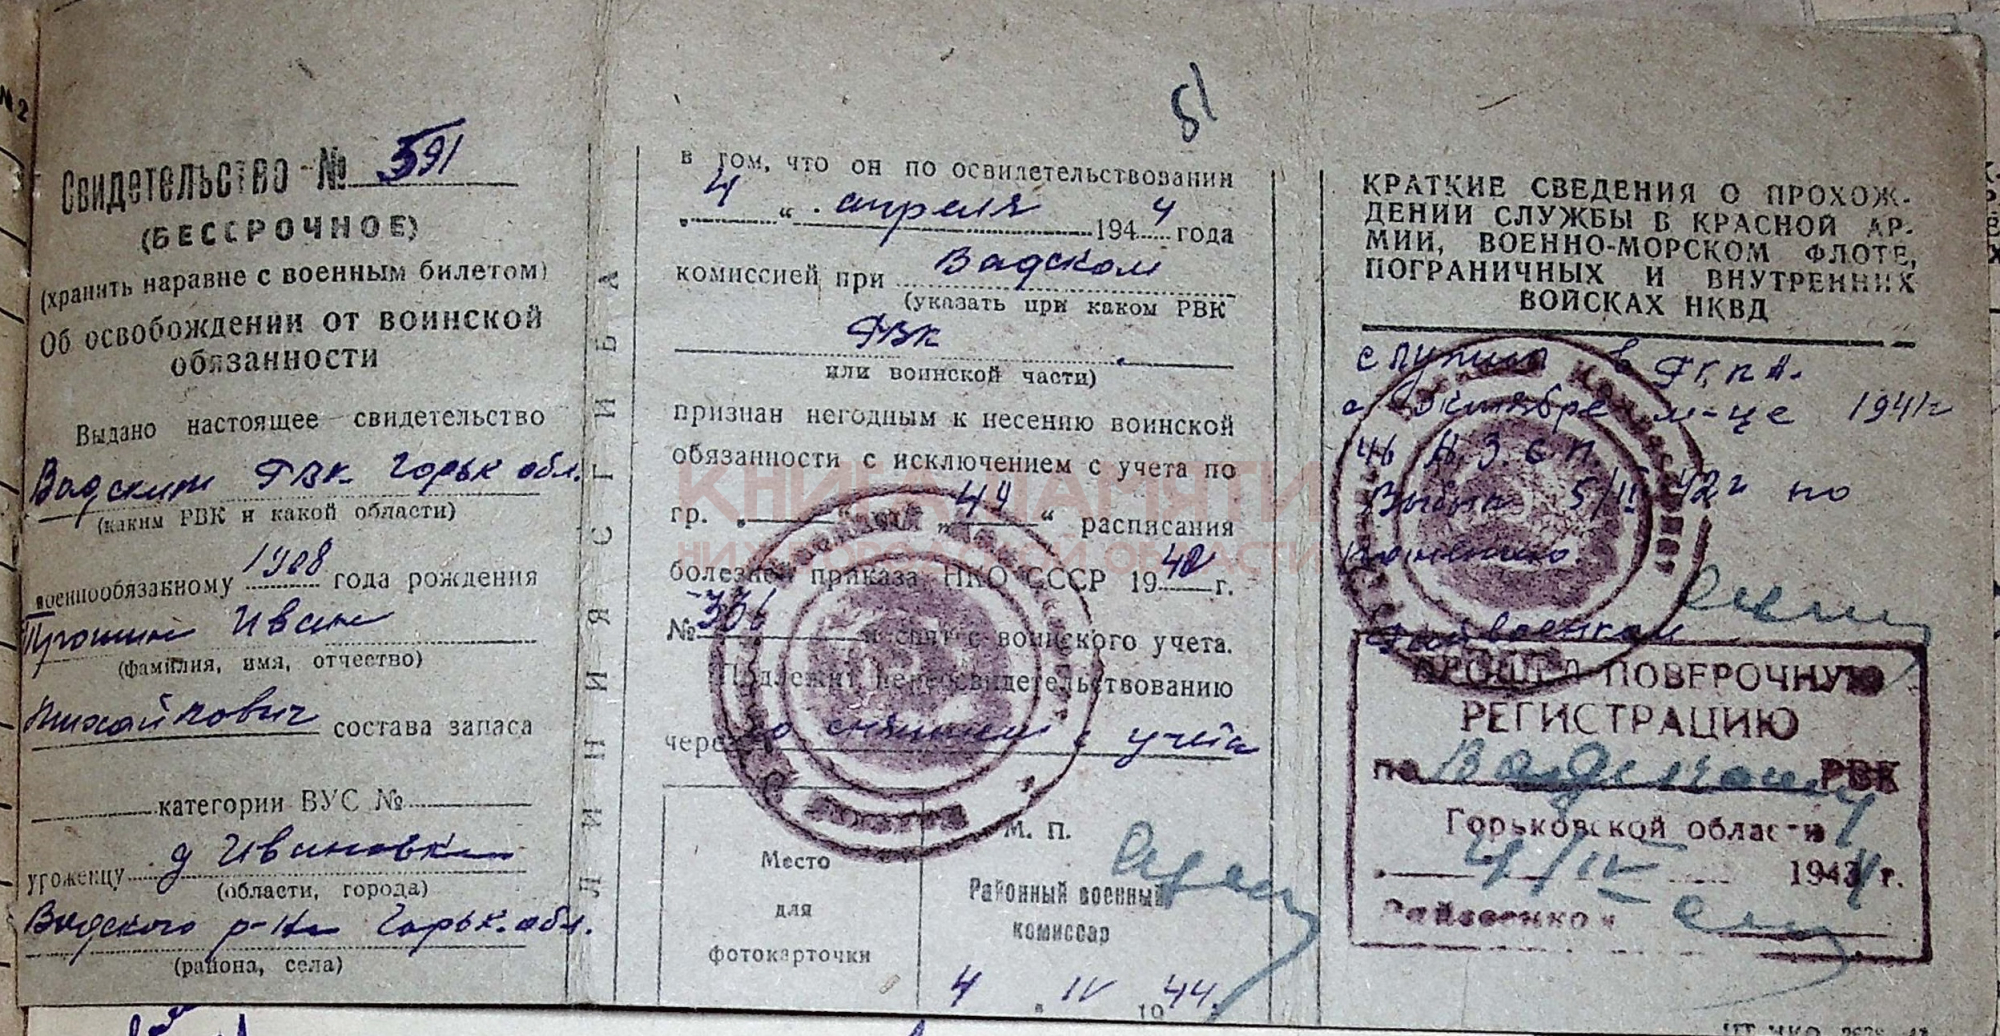 Свидетельство № 591
(БЕССРОЧНОЕ)
(хранить наравне с военным билетом)
Об освобождении от воинской
обязанности
Выдано настоящее свидетельство
Вадским РВК Горьк обл.
(каким РВК и какой области)
военнообязанному 1908 года рождения
Прошин Иван
(фамилия, имя, отчество)
Михайлович состава запаса
категории ВУС №
уроженцу д Ивановка
(области, города)
Вадского р-на Горьк. обл.
(района, села)
ЛИНИЯ СГИБА
51
в том, что он по освидетельствовании
„4“ апреля 1944 года
комиссией при Вадском
(указать при каком РВК
РВК
или воинской части)
признан негодным к несению воинской
обязанности с исключением с учета по
гр. „44“ расписания
болезней приказа НКО СССР 1942 г.
№ 336 и снят с воинского учета.
Подлежит переосвидетельствованию
через со снятием с учета
Место
для
фотокарточки
М. П.
Районный военный
комиссар
4 IV 1944.
КРАТКИЕ СВЕДЕНИЯ О ПРОХОЖ-
ДЕНИИ СЛУЖБЫ В КРАСНОЙ АР-
МИИ, ВОЕННО-МОРСКОМ ФЛОТЕ,
ПОГРАНИЧНЫХ И ВНУТРЕННИХ
ВОЙСКАХ НКВД
служил в
с Октябре м-це 1941г
46 З.С.П.
Выбыл 42г по
ранению
Райвоенком
ПРОШЕЛ ПОВЕРОЧНУЮ
РЕГИСТРАЦИЮ
по Вадскому РВК
Горьковской области
4/IV 1944 г.
Райвоенком
КНИГА ПАМЯТИ
НИЖЕГОРОДСКОЙ ОБЛАСТИ
№ 2